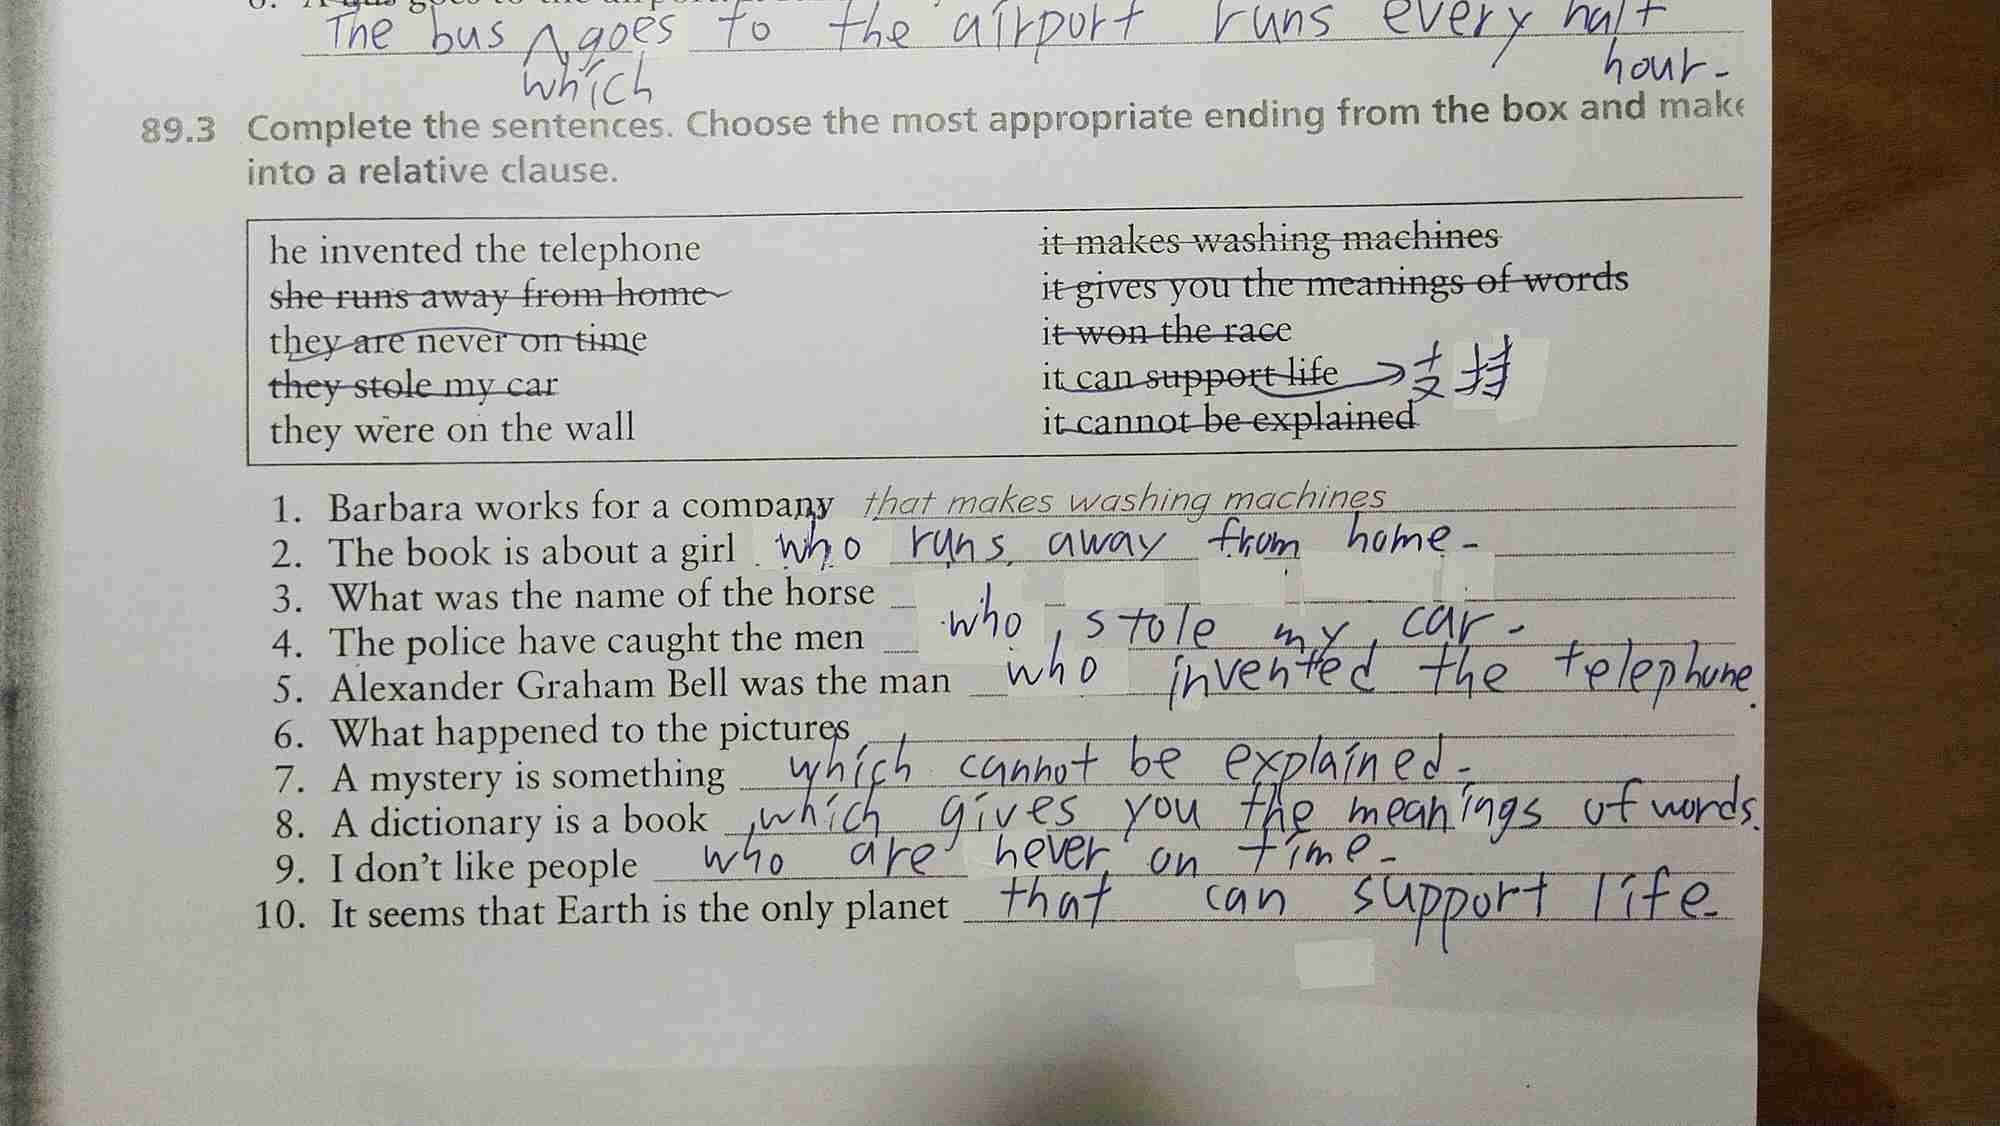 The bus goes to the airport runs every half
which
hour.
89.3 Complete the sentences. Choose the most appropriate ending from the box and make
into a relative clause.
he invented the telephone
she runs away from home
they are never on time
they stole my car
they were on the wall
it makes washing machines
it gives you the meanings of words
it won the race
it can support life → 支持
it cannot be explained
1. Barbara works for a company that makes washing machines
2. The book is about a girl who runs away from home.
3. What was the name of the horse
4. The police have caught the men who stole my car.
5. Alexander Graham Bell was the man who invented the telephone.
6. What happened to the pictures
7. A mystery is something which cannot be explained.
8. A dictionary is a book which gives you the meanings of words.
9. I don't like people who are never on time.
10. It seems that Earth is the only planet that can support life.